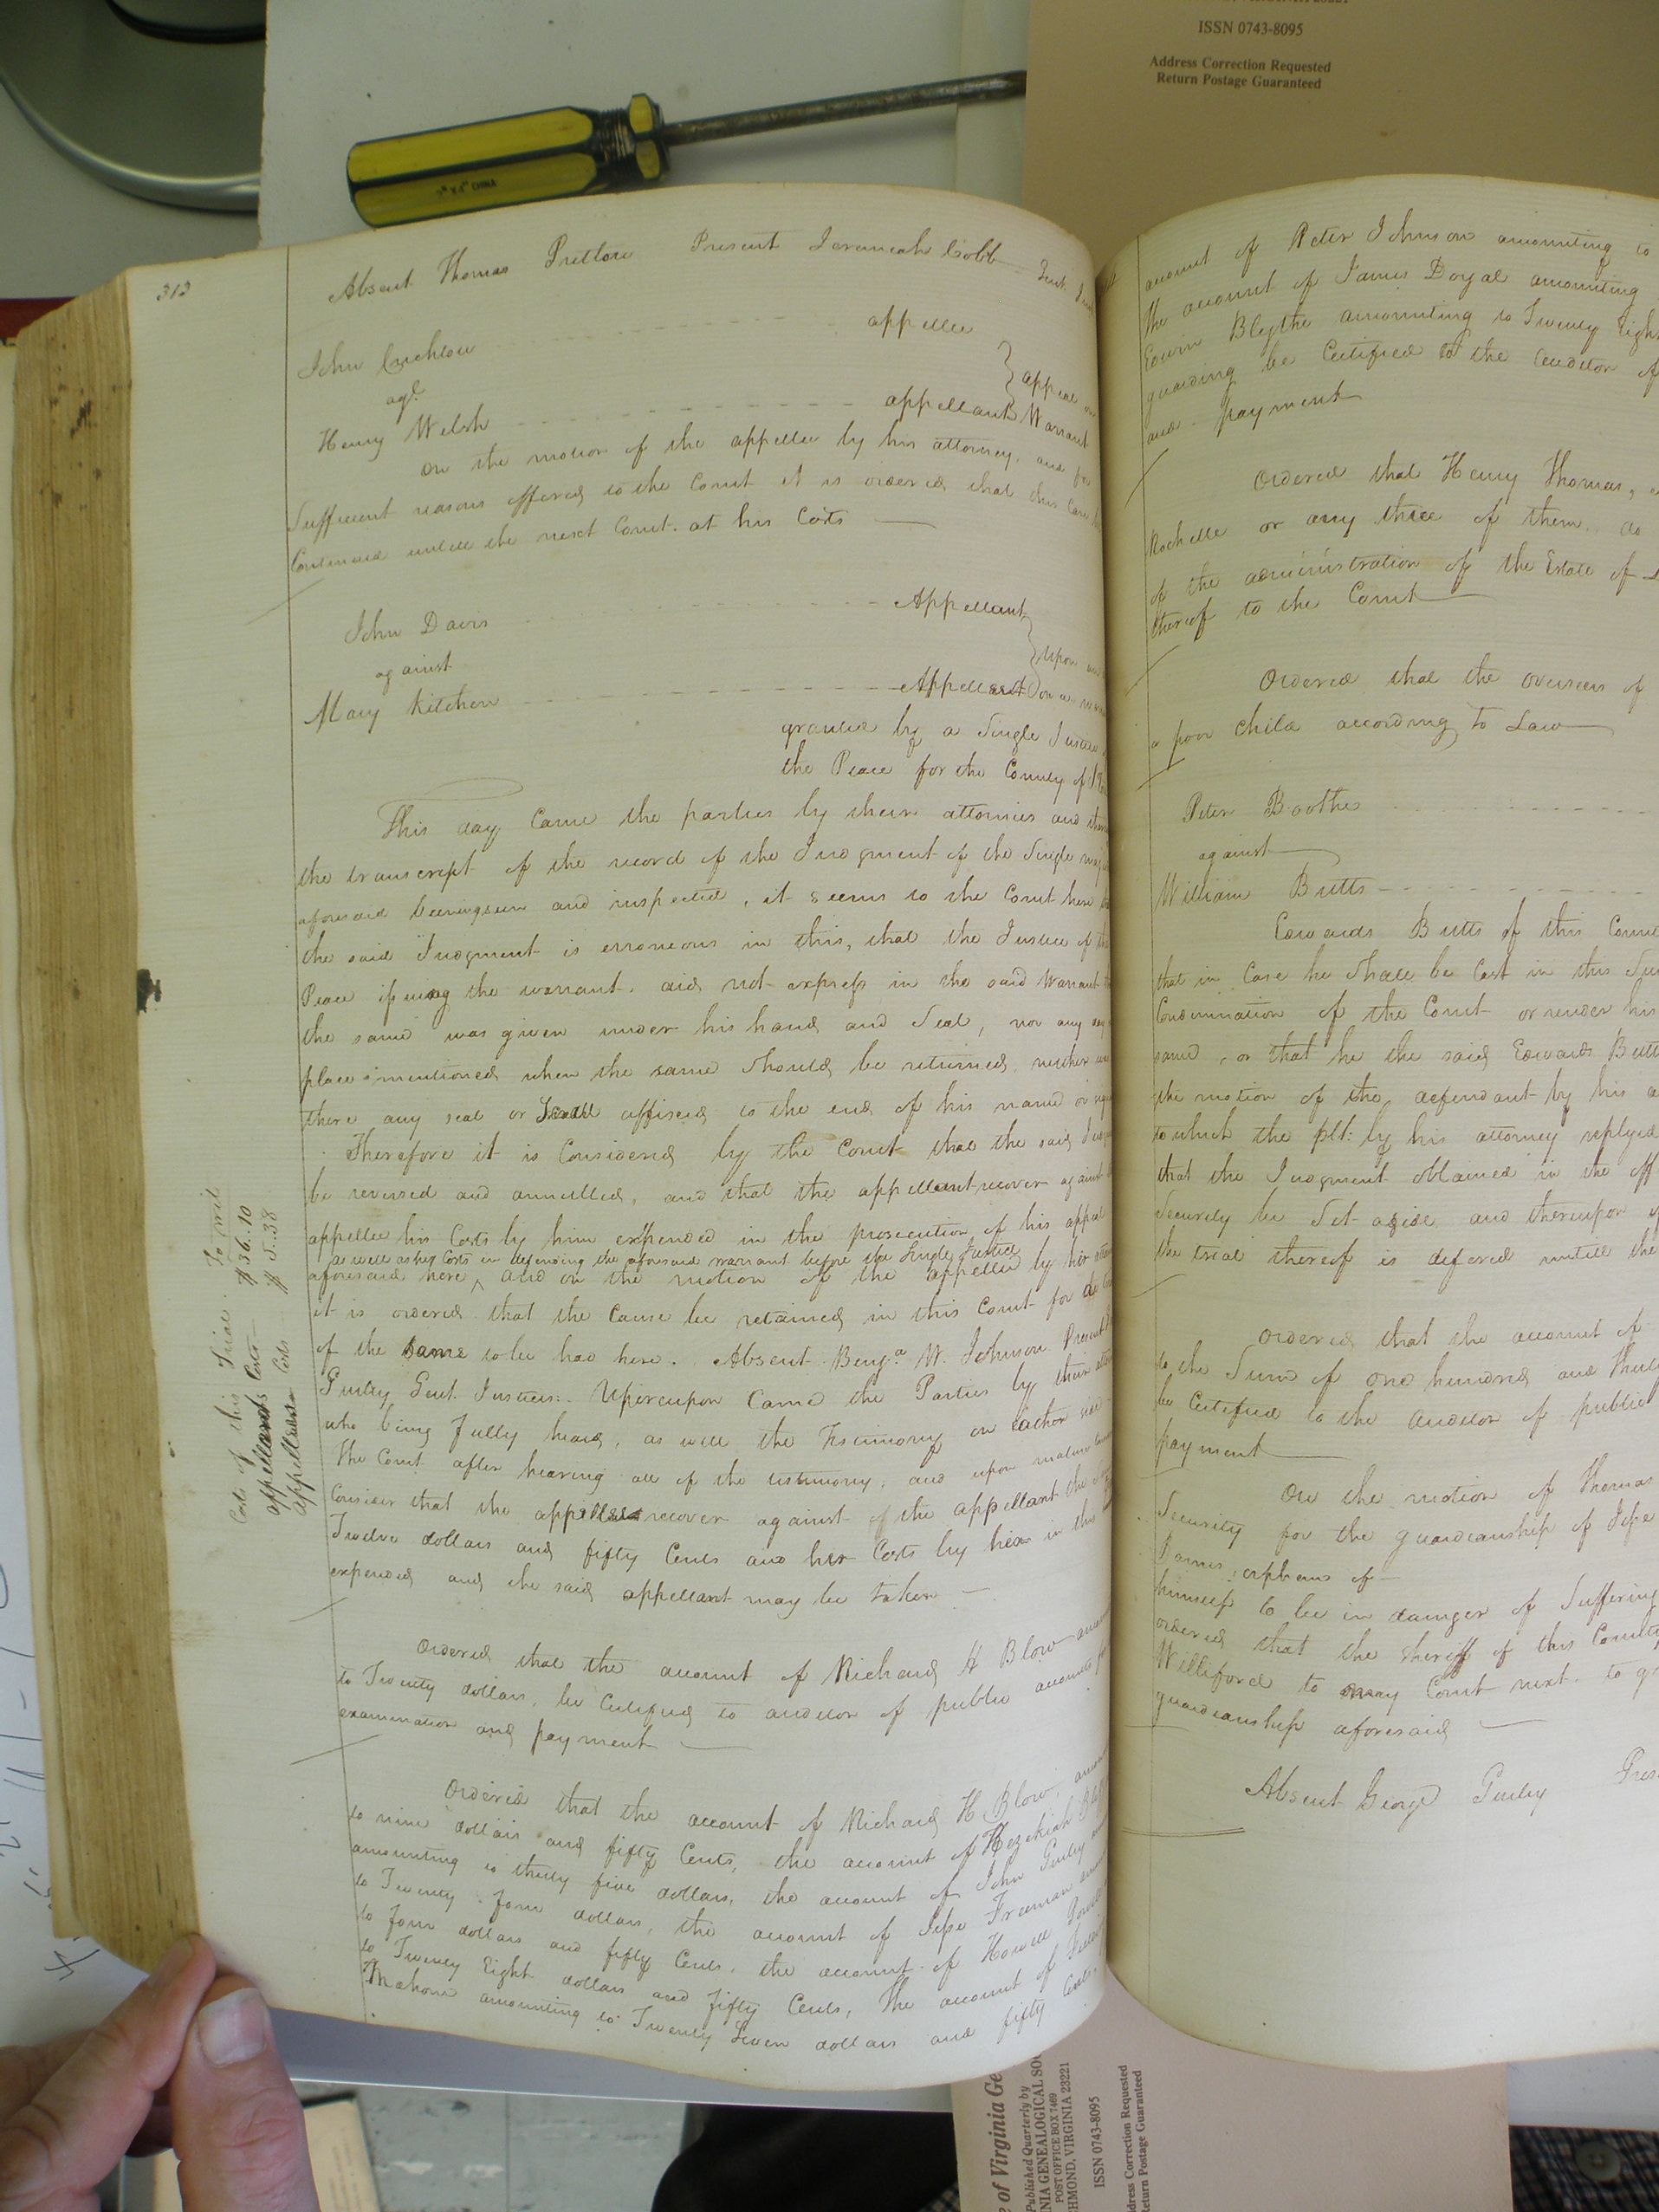 ISSN 0743-8095
Address Correction Requested
Return Postage Guaranteed
CHINA
313
Absent Thomas Pretlow Present Jeremiah Cobb Gent.
John Crichlow appellee
agt.
appeal on
Henry Welsh appellant Warrant
On the motion of the appellee by his attorney, and for
Sufficient reasons offered to the Court it is ordered that this Cause
Continued untill the next Court. at his Costs
John Davis Appellant
against
upon
Mary Kitchen Appellee on a
granted by a Single Justice
the Peace for the County of
This day Came the parties by their attornies and
the transcript of the record of the Judgment of the Single
aforesaid being seen and inspected, it seems to the Court here
the said Judgment is erroneous in this, that the Justice of
Peace issuing the warrant. did not express in the said Warrant
the same was given under his hand and Seal, nor any
place mentioned when the same Should be returned, neither
there any seal or Scroll affixed to the end of his name
Therefore it is Considered by the Court that the said
be reversed and annulled, and that the appellant recover against
appellee his Costs by him expended in the prosecution of his appeal
as well as his Costs in defending the aforesaid warrant before the Single Justice
aforesaid here, and on the motion of the appellee by her
it is ordered that the Cause be retained in this Court for
of the Same to be had here. Absent Benja. W. Johnson Present
Gurley Gent. Justices. Whereupon Came the Parties by their
who being fully heard, as well the Testimony on either side
The Court after hearing all of the testimony, and upon mature
Consider that the appellee recover against of the appellant the
Twelve dollars and fifty Cents and her Costs by her in this
expended and the said appellant may be taken
Costs of this Trial. To wit
appellants Costs $36..10
appellees Costs $5.38
Ordered that the account of Richard H Blow
to Twenty dollars, be Certified to auditor of public accounts for
examination and payment
Ordered that the account of Richard H Blow,
to nine dollars and fifty Cents, the account of Hezekiah
amounting to thirty five dollars, the account of John Gurley
to Twenty four dollars, the account of Jesse Freeman
to four dollars and fifty Cents. the account of Howell
to Twenty Eight dollars and fifty Cents, The account of
Mahone amounting to Twenty Seven dollars and fifty Cents,
account of Peter Johnson amounting to
the account of James Doyal amounting
Edwin Blythe amounting to Twenty Eight
guarding be Certified to the auditor of
and payment
Ordered that Henry Thomas,
Rochelle or any three of them do
of the administration of the Estate of
thereof to the Court
Ordered that the overseers of
a poor child according to Law
Peter Boothe
against
William Butts
Edwards Butts of this County
that in Case he Shall be Cast in this
Condemnation of the Court or render his
same, or that he the said Edwards Butts
the motion of the defendant by his
to which the plt: by his attorney replyed
that the Judgment obtained in the
Security be Set aside and thereupon
the trial thereof is defered untill the
Ordered that the account of
to the Sum of one hundred and
be Certified to the auditor of public
payment
On the motion of Thomas
Security for the guardianship of Jesse
James, orphans of
himself to be in danger of Suffering
ordered that the Sheriff of this County
Williford to may Court next. to
guardianship aforesaid
Absent George Gurley
of Virginia Ge
Published Quarterly by
NIA GENEALOGICAL SO
POST OFFICE BOX 7469
HMOND, VIRGINIA 23221
ISSN 0743-8095
ddress Correction Requested
Return Postage Guaranteed